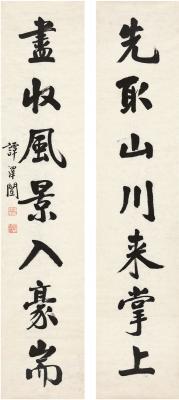 先取山川来掌上
盡收風景入豪耑
譚澤闓